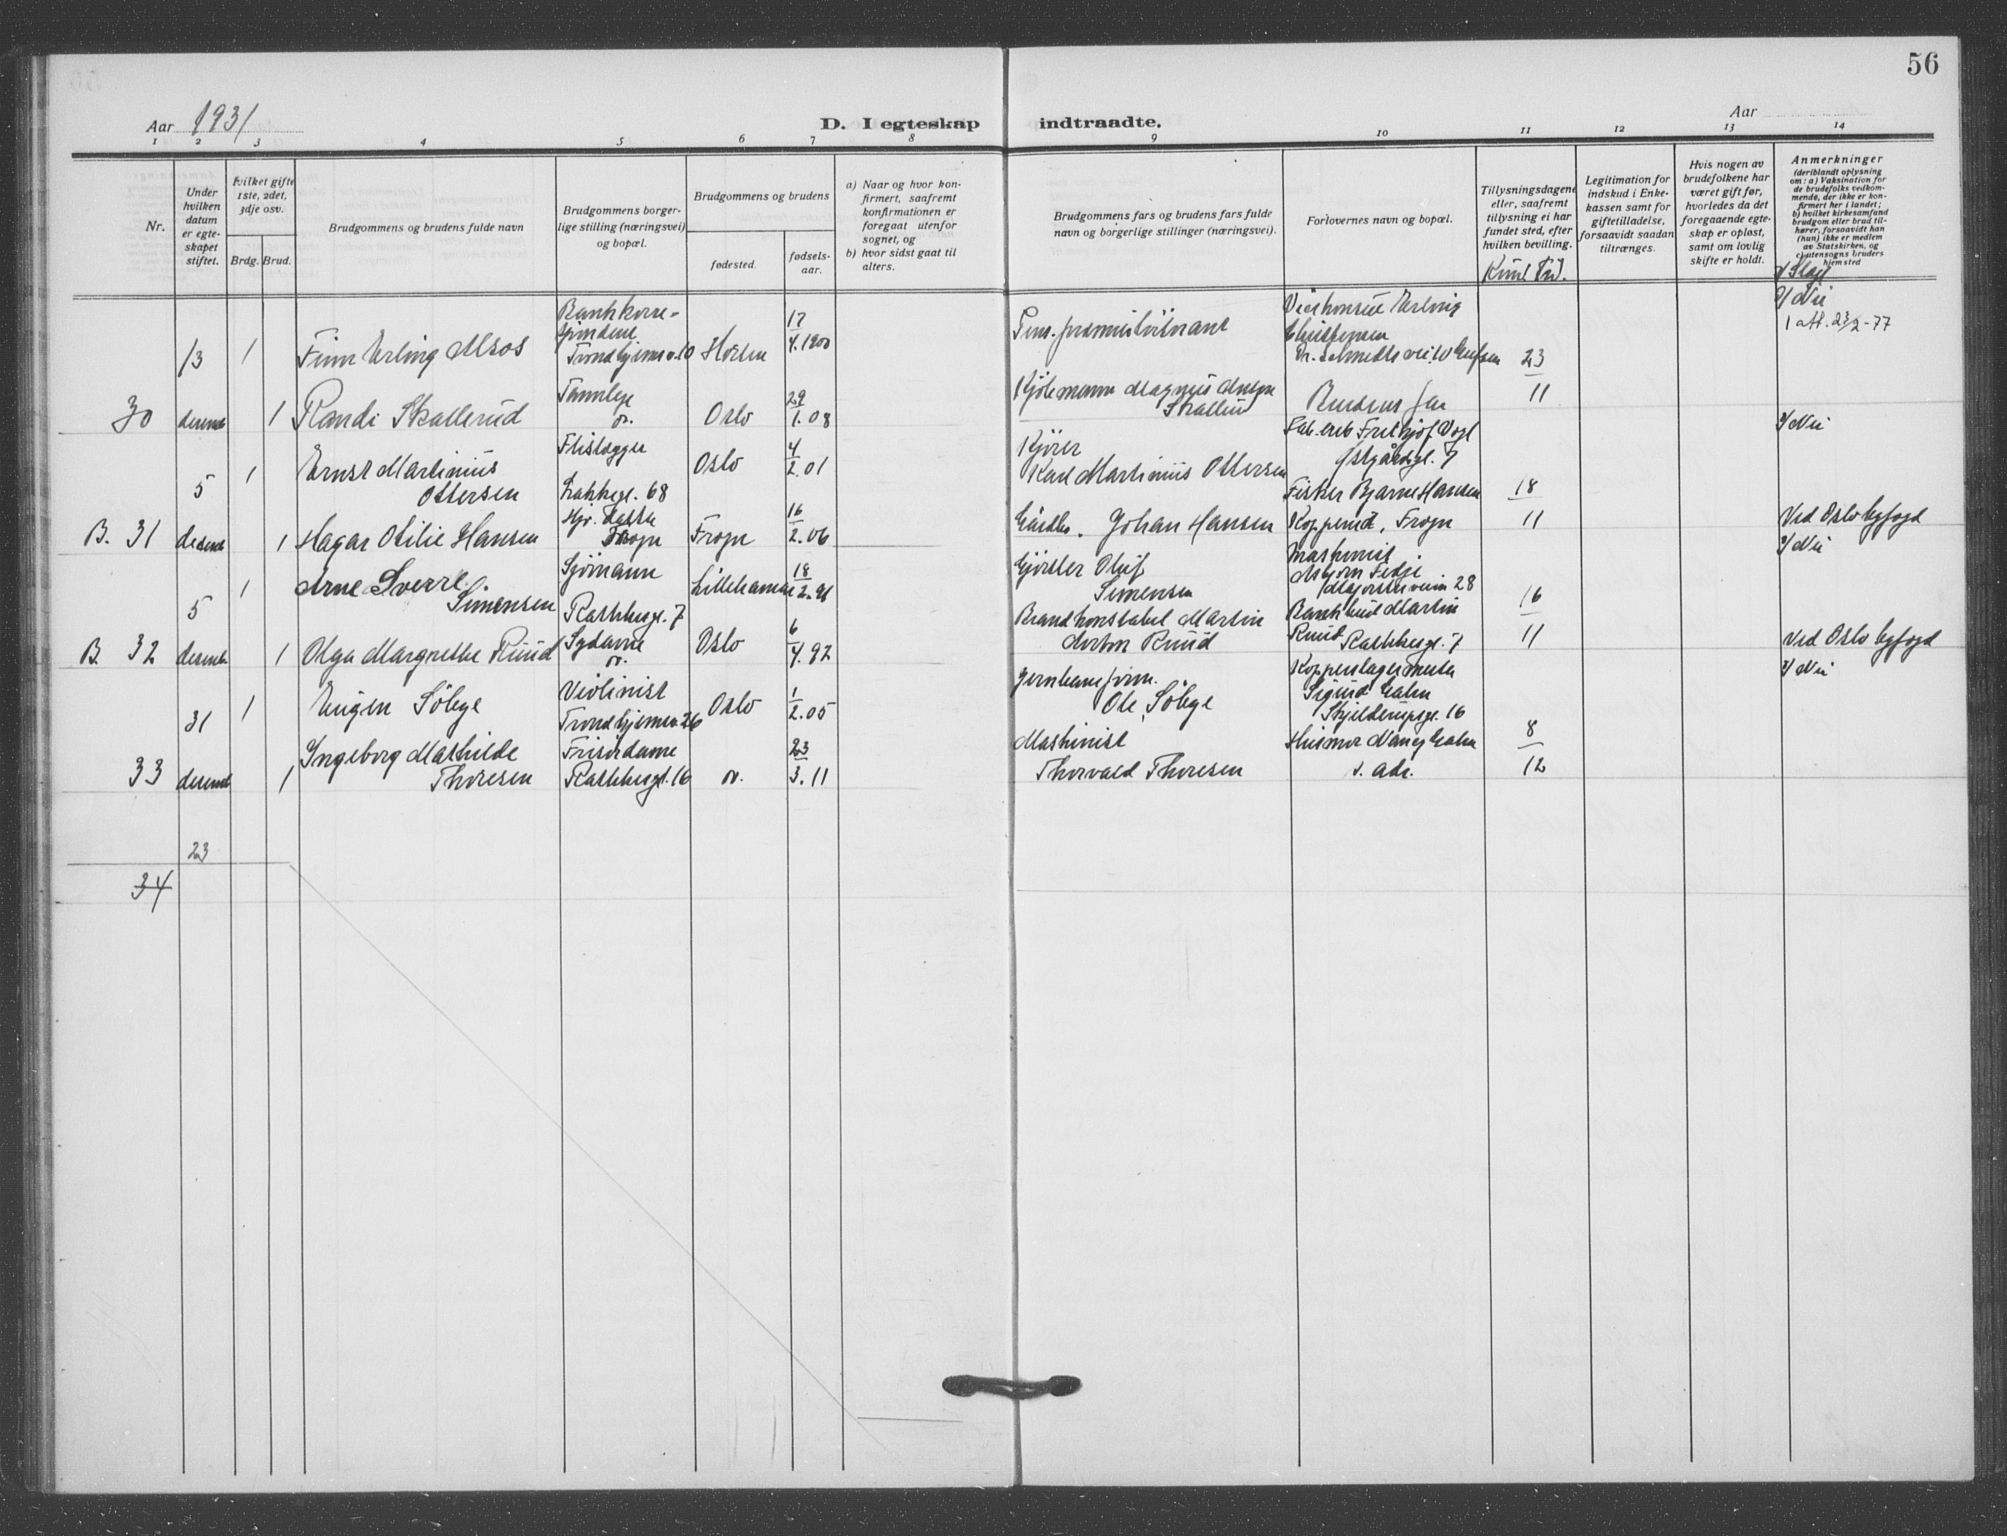 56
Aar 1931
D. I egteskap indtraadte.
Aar
1 2 3 4 5 6 7 8 9 10 11 12 13 14
Nr.
Under
hvilken
datum
er egte-
skapet
stiftet.
hvilket gifte
1ste, 2det,
3dje osv.
Brdg. Brud.
Brudgommens og brudens fulde navn
Brudgommens borger-
lige stilling (næringsvei)
og bopæl.
Brudgommens og brudens
fødested.
fødsels-
aar.
a) Naar og hvor kon-
firmert, saafremt
konfirmationen er
foregaat utenfor
sognet, og
b) hvor sidst gaat til
alters.
Brudgommens fars og brudens fars fulde
navn og borgerlige stillinger (næringsvei).
Forlovernes navn og bopæl.
Tillysningsdagene
eller, saafremt
tillysning ei har
fundet sted, efter
hvilken bevilling.
Legitimation for
indskud i Enke-
kassen samt for
giftetilladelse,
forsaavidt saadan
tiltrænges.
Hvis nogen av
brudefolkene har
været gift før,
hvorledes da det
foregaaende egte-
skap er opløst,
samt om lovlig
skifte er holdt.
Anmerkninger
(deriblandt oplysning
om: a) Vaksination for
de brudefolks vedkom-
mende, der ikke er kon-
firmert her i landet;
b) hvilket kirkesamfund
brudgom eller brud til-
hører, forsaavidt han
(hun) ikke er medlem
av Statskirken, og
c) utensogns bruders
hjemsted
13 1 Finn Erling Moos
Trondhjemsv. 10 Horten 17/4.1900
23
1 att. 23/2-77
30 desemb 1 Randi Skallerud
Tannlege
Oslo 29/1.08
Kjølemann Magnus
Brudens far
11
5 1 Ernst Martinius
Ottersen
Flislegger
Oslo 4/2.01
Kjører
Karl Martinius Ottersen
Fridtjof Vogt
7
18
y Nei
B. 31 desemb 1 Hagar Otilie Hansen
Frogn
Frogn 16/2.06
Johan Hansen
Fisker Bjarne Hansen
Kopperud, Frogn
11
Ved Oslo byfogd
y Nei
5 1 Arne Sverre
Simensen
Sjømann
Rathkesgt. 7
Lillehammer 18/2
Gjørtler Oluf
Simensen
Maskinist
Asbjørn Fedje
Majorstuveien 28
16
B. 32 desemb. 1 Olga Margrethe Ruud
Sydame
Oslo 6/4.92
Brandkonstabel Martin
Anton Ruud
Martin
Ruud Rathkesgt. 7
11
Ved Oslo byfogd
y Nei
31 1 Eugen Solvge
Violinist
Trondhjemsv. 26
Oslo 1/2.05
Ole
Sigurd
Skjelderupsgt. 16
8
33 desemb 1 Ingeborg Mathilde
Thoresen
Frisørdame
Rathkesgt. 16
3.11
23
Maskinist
Thorvald Thoresen
Husmor Nancy
s. adr.
12
23
34